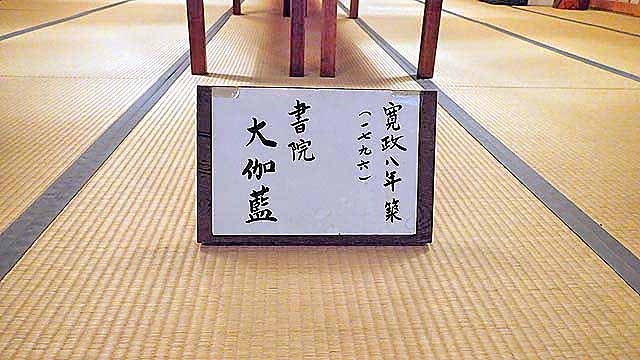 寛政八年築
(一七九六)
書院
大伽藍